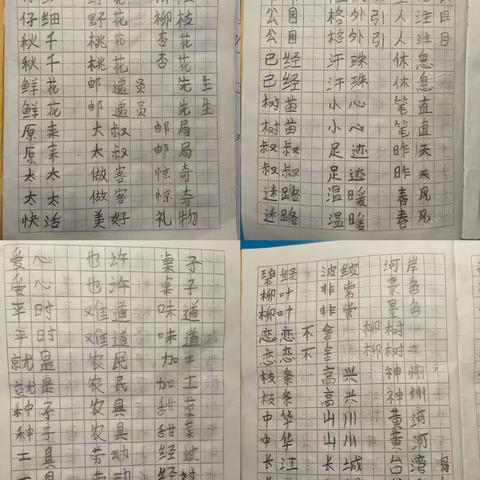 仔细 野花 柳枝
仔细 野花 柳枝
秋千 桃花 杏花
秋千 桃花 杏花
鲜花 邮递员 先生
鲜花 邮递员 先生
原来 大叔 邮局
原来 太叔 邮局
太太 做客 惊奇
太太 做客 惊奇
快活 美好 礼物
公园 格外 引人注目
公园 格外 引人注目
已经 汗珠 休息
已经 汗珠 休息
树苗 小心 笔直
树苗 小心 笔直
叔叔 足迹 昨天
叔叔 足迹 昨天
迷路 温暖 春风
迷路 温暖 春风
爱心 也许 桌子
爱心 也许 桌子
平时 难道 味道
平时 难道 味道
就是 农民 加工
就是 农民 加工
种子 农具 甜菜
种子 农具 甜菜
工具 劳动 经过
工具 劳动 经过
碧绿 波纹 河岸
柳叶 非常 景色
柳叶 非常 景色
恋恋不舍 柳树
恋恋不舍 柳树
枝条 高兴 神州
枝条 高兴 神州
中华 山川 黄河
中华 山川 黄河
长江 长城 台湾岛